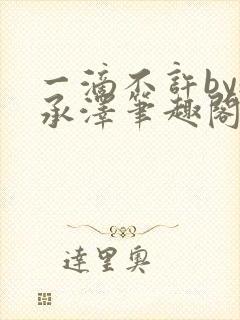 一滴不許by
承澤筆趣閣
達里奧